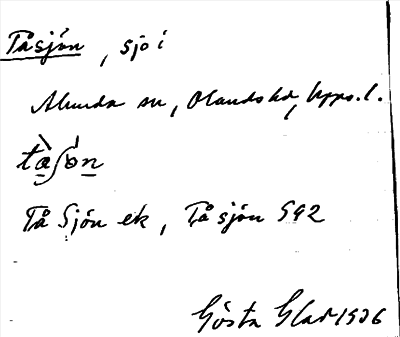 Tåsjön, sjö i
Alunda sn, Olands hd, Upps. l.
tåʃön
Tå Sjön ek, Tå sjön 592
Gösta Glad 1936